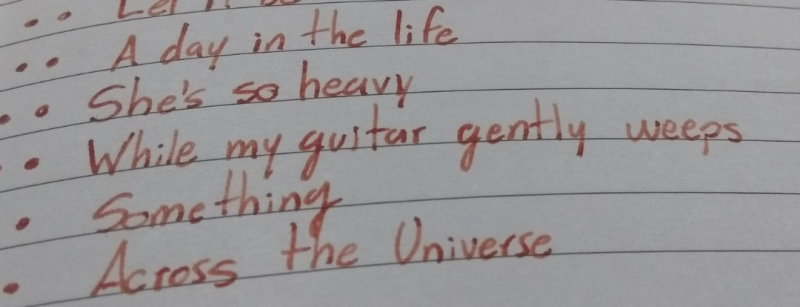 • • A day in the life
• • She's so heavy
• • While my guitar gently weeps
• Something
• Across the Universe